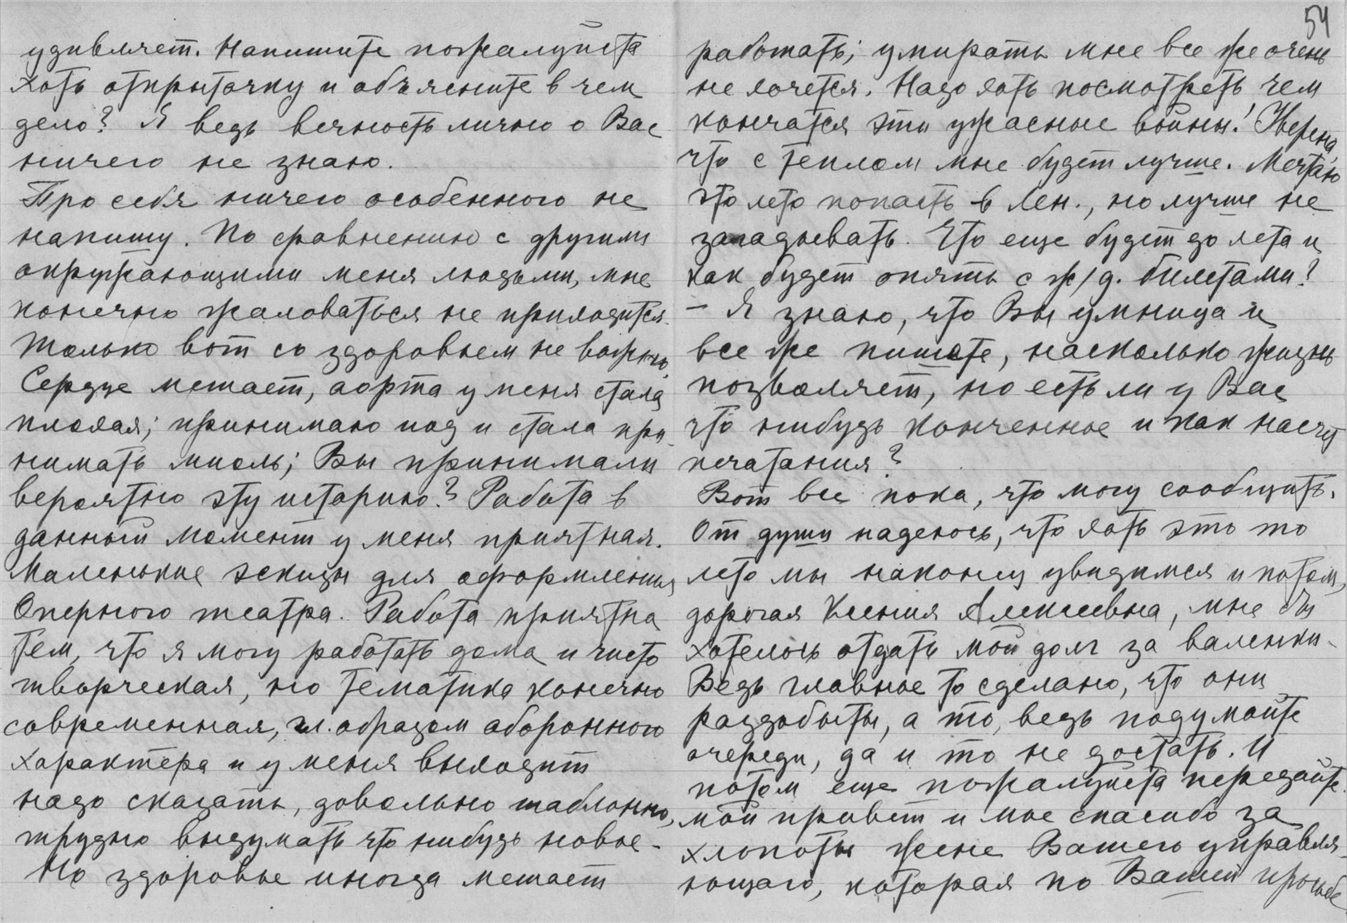 удивляет. Напишите пожалуйста
хоть открыточку и объясните в чем
дело? Я ведь вечность лично о Вас
ничего не знаю.
Про себя ничего особенного не
напишу. По сравнению с другими
окружающими меня людьми, мне
конечно жаловаться не приходится.
Только вот со здоровьем не важно,
Сердце мешает, аорта у меня стала
плохая; принимаю иод и стала при-
нимать ; Вы принимали
вероятно эту историю? Работа в
данный момент у меня приятная.
Маленькие эскизы для оформления
Оперного театра. Работа приятна
тем, что я могу работать дома и чисто
творческая, но тематика конечно
современная, гл. образом оборонного
характера и у меня выходит
надо сказать, довольно шаблонно,
трудно выдумать что нибудь новое.
Но здоровье иногда мешает
54
работать; умирать мне все же очень
не хочется. Надо хоть посмотреть чем
кончатся эти ужасные войны! Уверена,
что с теплом мне будет лучше. Мечтаю
это лето попасть в Лен., но лучше не
загадывать. Что еще будет до лета и
как будет опять с ж/д. билетами?
– Я знаю, что Вы умница и
все же пишете, насколько жизнь
позволяет, но есть ли у Вас
что нибудь конченное и как насчет
печатания?
Вот все пока, что могу сообщить.
От души надеюсь, что хоть это то
лето мы наконец увидимся и потом,
дорогая Ксения Алексеевна, мне бы
хотелось отдать мой долг за валенки.
Ведь главное то сделано, что они
раздобыты, а то, ведь подумайте
очереди, да и то не достать. И
потом еще пожалуйста передайте
мой привет и мое спасибо за
хлопоты жене Вашего управля-
ющаго, которая по Вашей просьбе